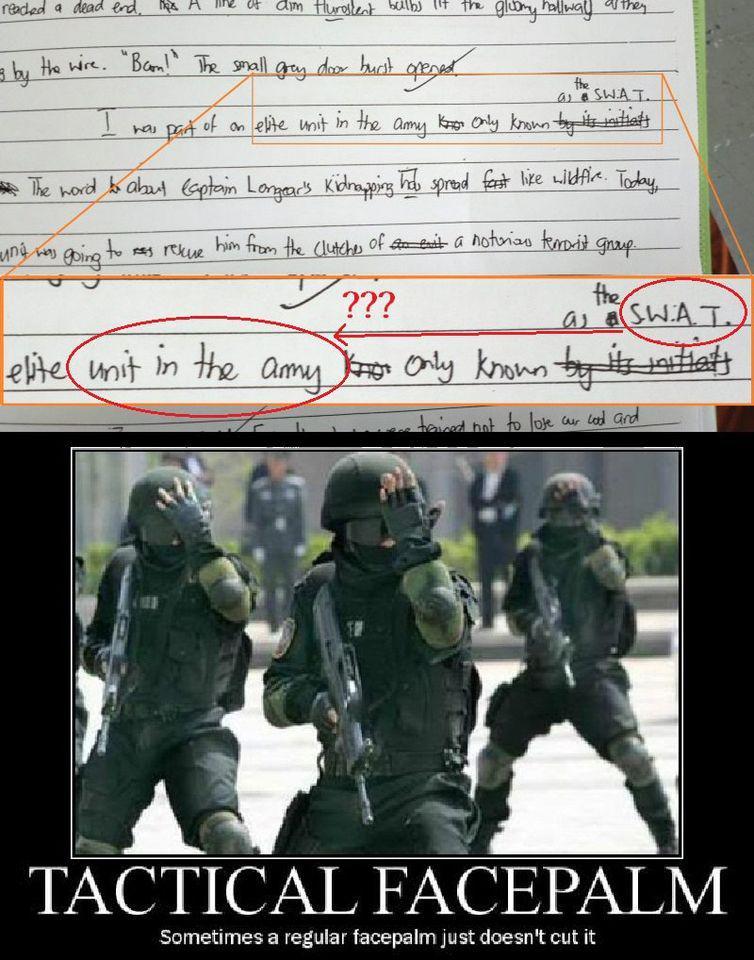 reached a dead end. A line of dim flurosent bulbs lit the gloomy hallway as they
by the wire. "Bam!" The small grey door burst opened.
as the S.W.A.T.
I was part of an elite unit in the army only known by its initials
The word about Captain Longear's Kidnapping had spread fast like wildfire. Today,
unit was going to rescue him from the clutches of an evil a notorious terrorist group.
???
as the S.W.A.T.
elite unit in the army only known by its initials
trained not to lose our cool and
TACTICAL FACEPALM
Sometimes a regular facepalm just doesn't cut it